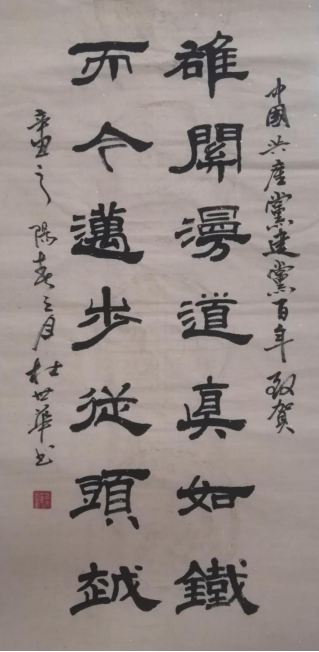 中國共產黨建黨百年致賀
雄關漫道真如鐵
而今邁步從頭越
辛丑之陽春三月杜世華书